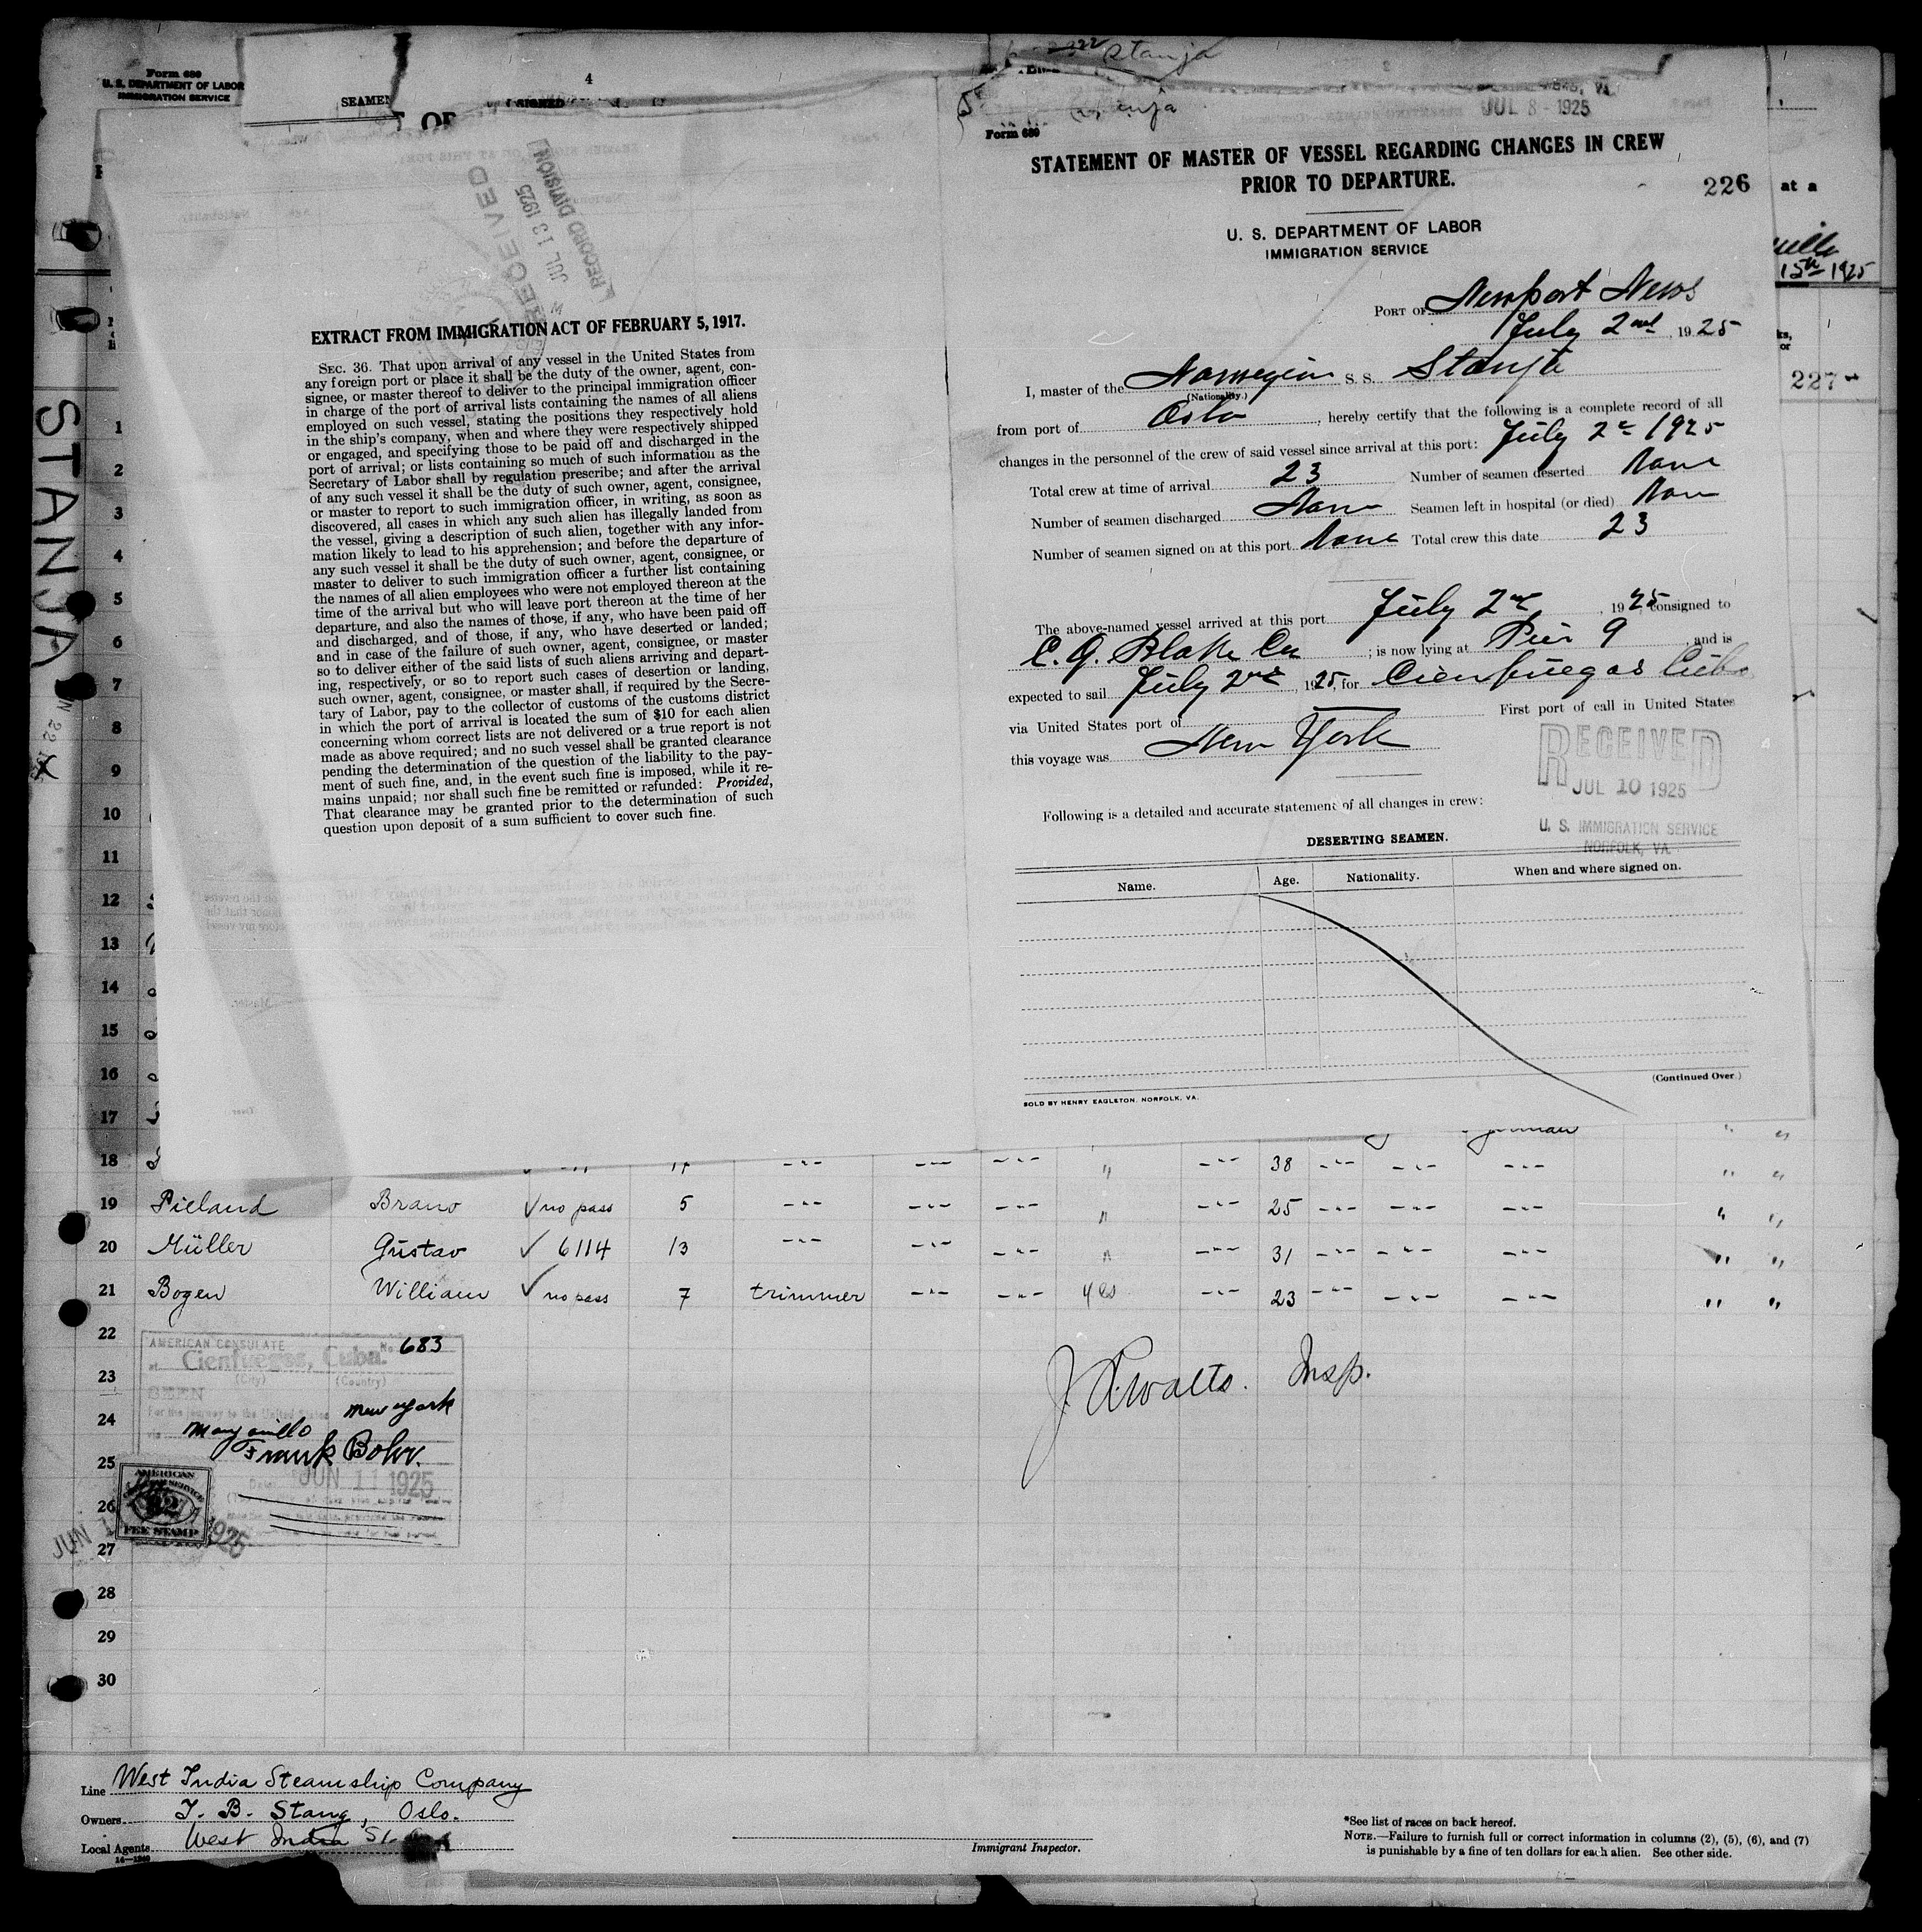 Form 680
U. S. DEPARTMENT OF LABOR
IMMIGRATION SERVICE
4
SEAMEN
SIGNED
OF
RECEIVED
JUL 13 1925
RECORD DIVISION
EXTRACT FROM IMMIGRATION ACT OF FEBRUARY 5, 1917.
SEC. 36. That upon arrival of any vessel in the United States from
any foreign port or place it shall be the duty of the owner, agent, con-
signee, or master thereof to deliver to the principal immigration officer
in charge of the port of arrival lists containing the names of all aliens
employed on such vessel, stating the positions they respectively hold
in the ship's company, when and where they were respectively shipped
or engaged, and specifying those to be paid off and discharged in the
port of arrival; or lists containing so much of such information as the
Secretary of Labor shall by regulation prescribe; and after the arrival
of any such vessel it shall be the duty of such owner, agent, consignee,
or master to report to such immigration officer, in writing, as soon as
discovered, all cases in which any such alien has illegally landed from
the vessel, giving a description of such alien, together with any infor-
mation likely to lead to his apprehension; and before the departure of
any such vessel it shall be the duty of such owner, agent, consignee, or
master to deliver to such immigration officer a further list containing
the names of all alien employees who were not employed thereon at the
time of the arrival but who will leave port thereon at the time of her
departure, and also the names of those, if any, who have been paid off
and discharged, and of those, if any, who have deserted or landed;
and in case of the failure of such owner, agent, consignee, or master
so to deliver either of the said lists of such aliens arriving and depart-
ing, respectively, or so to report such cases of desertion or landing,
such owner, agent, consignee, or master shall, if required by the Secre-
tary of Labor, pay to the collector of customs of the customs district
in which the port of arrival is located the sum of $10 for each alien
concerning whom correct lists are not delivered or a true report is not
made as above required; and no such vessel shall be granted clearance
pending the determination of the question of the liability to the pay-
ment of such fine, and, in the event such fine is imposed, while it re-
mains unpaid; nor shall such fine be remitted or refunded: Provided,
That clearance may be granted prior to the determination of such
question upon deposit of a sum sufficient to cover such fine.
STANJA
Stanja
JUL 8 - 1925
Form 680
STATEMENT OF MASTER OF VESSEL REGARDING CHANGES IN CREW
PRIOR TO DEPARTURE.
226
at a
U. S. DEPARTMENT OF LABOR
IMMIGRATION SERVICE
15th 1925
227
PORT OF Newport News
July 2nd, 1925
I, master of the Norwegian S. S. Stanja
(Nationality.)
from port of Oslo, hereby certify that the following is a complete record of all
changes in the personnel of the crew of said vessel since arrival at this port: July 2d 1925
Total crew at time of arrival 23 Number of seamen deserted None
Number of seamen discharged None Seamen left in hospital (or died) Non
Number of seamen signed on at this port None Total crew this date 23
The above-named vessel arrived at this port July 2nd, 1925, consigned to
C. G. Blake Co ; is now lying at Pier 9, and is
expected to sail July 2nd, 1925, for Cienfuegos Cuba
via United States port of First port of call in United States
this voyage was New York
RECEIVED
JUL 10 1925
U. S. IMMIGRATION SERVICE
NORFOLK, VA.
Following is a detailed and accurate statement of all changes in crew:
DESERTING SEAMEN.
Name. Age. Nationality. When and where signed on.
(Continued Over)
SOLD BY HENRY EAGLETON, NORFOLK, VA.
1
2
3
4
5
6
7
8
9
10
11
12
13
14
15
16
17
18 " 38 " "
19 Pieland Bruno ✓ no pass 5 --- --- --- " --- 25 --- --- --- " "
20 Müller Gustav ✓ 6114 13 --- --- --- " --- 31 --- --- --- " "
21 Bogen William ✓ no pass 7 trimmer --- --- yes --- 23 --- --- --- " "
22
23
24
25
26
27
28
29
30
AMERICAN CONSULATE No. 683
at Cienfuegos, Cuba.
(City) (Country)
SEEN
For the journey to the United States
via Manzanillo New York
Frank Bohr.
Date JUN 11 1925
AMERICAN
SERVICE
$2
FEE STAMP
JUN 1925
Insp.
Line West India Steamship Company
Owners T. B. Stang, Oslo.
Local Agents West India
14—1240
Immigrant Inspector.
*See list of races on back hereof.
NOTE.—Failure to furnish full or correct information in columns (2), (5), (6), and (7)
is punishable by a fine of ten dollars for each alien. See other side.